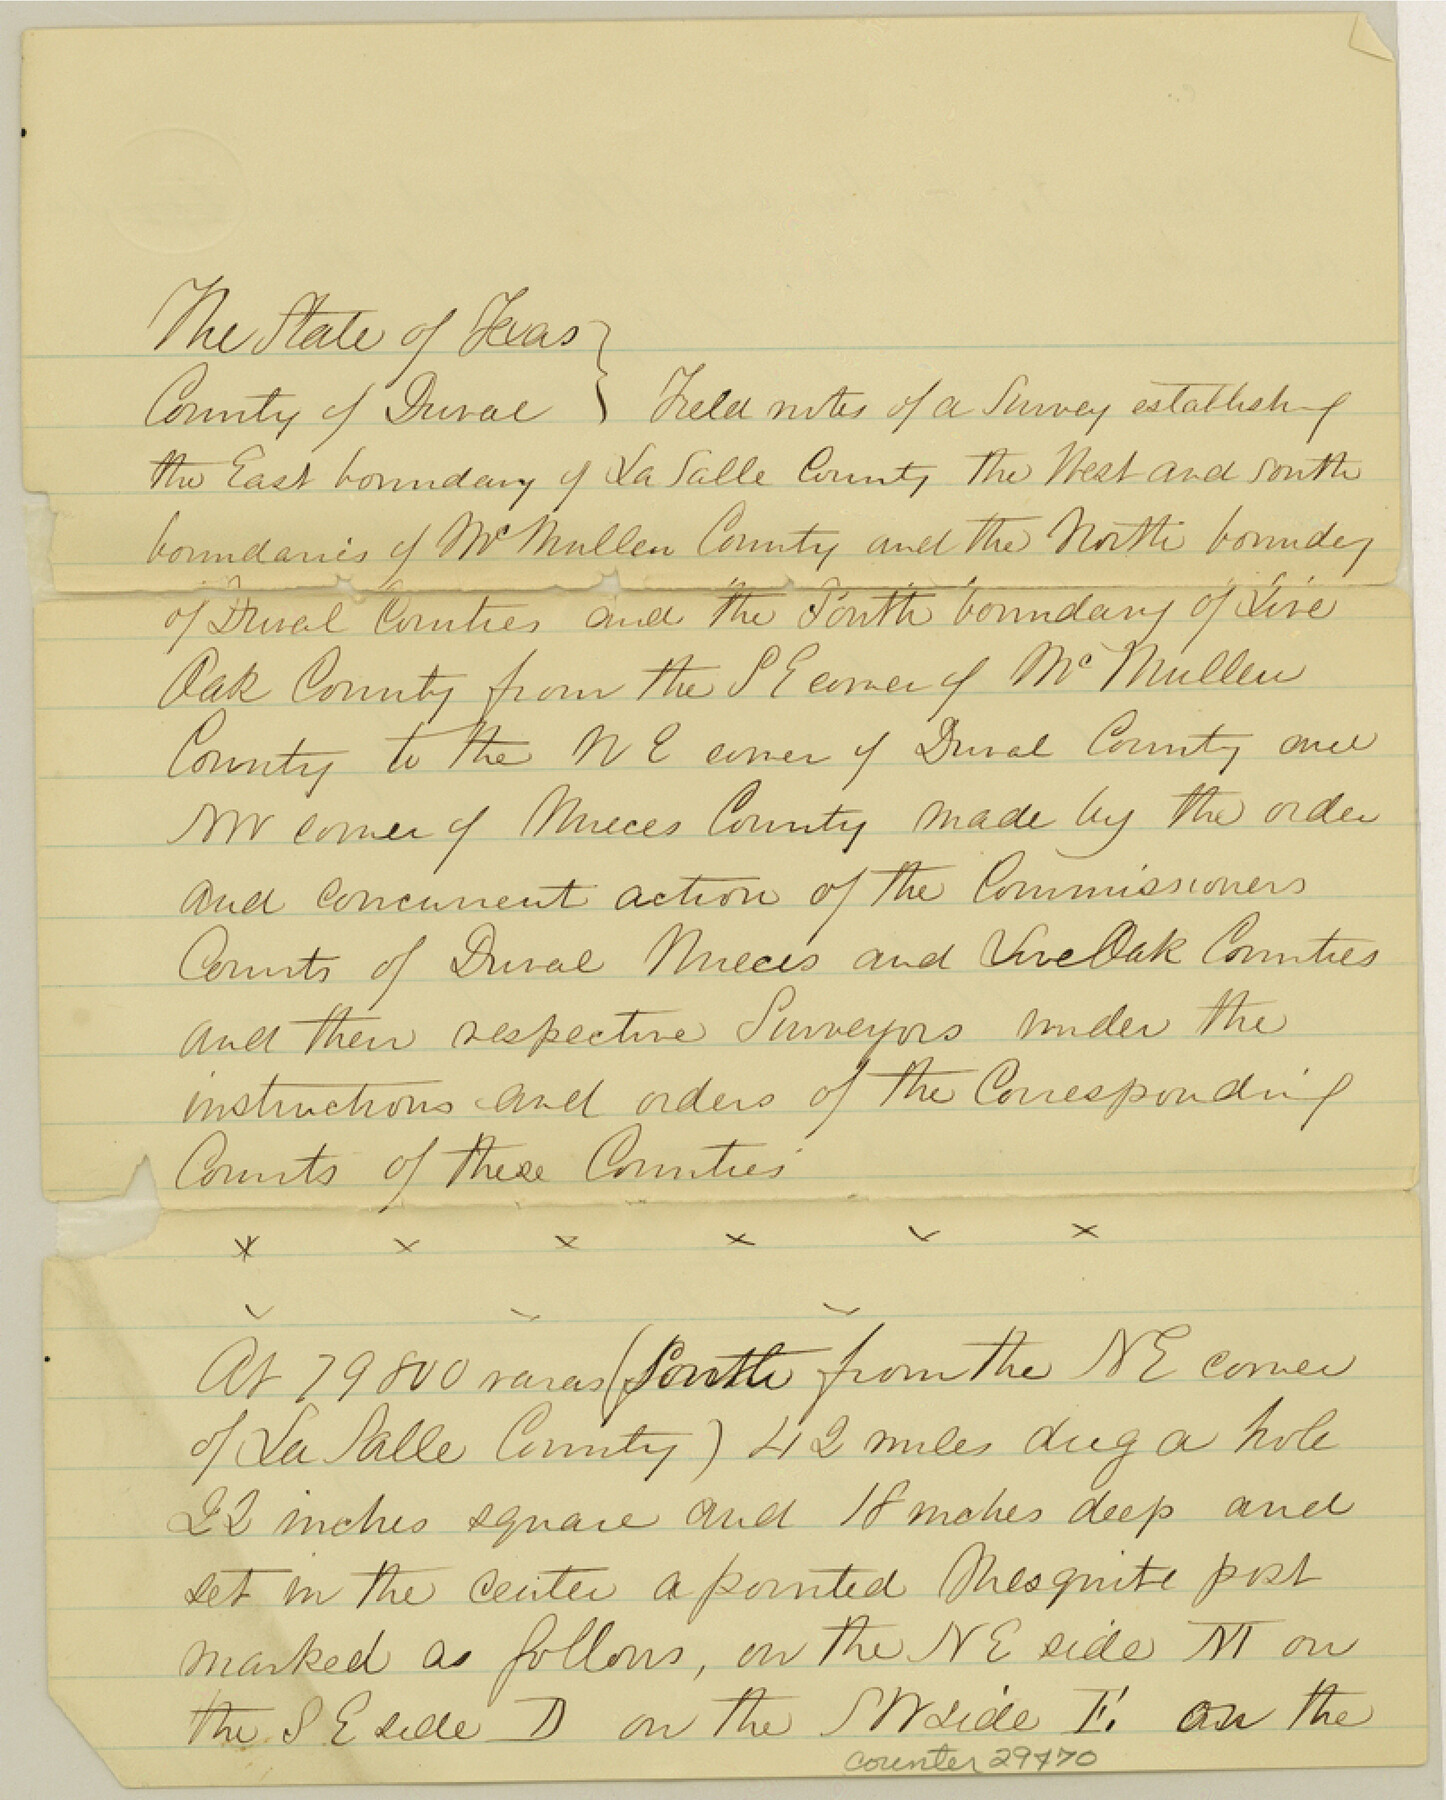 The State of Texas }
County of Duval } Field notes of a Survey establishing
the East boundary of La Salle County the West and South
boundaries of McMullen County and the North boundry
of Duval Counties and the South boundary of Live
Oak County from the S E corner of McMullen
County to the N E corner of Duval County and
NW corner of Nueces County made by the order
and concurrent action of the Commissioners
Courts of Duval Nueces and Live Oak Counties
and their respective Surveyors under the
instructions and orders of the Corresponding
Courts of these Counties
x x x x x x
At 79800 varas (South from the N E corner
of La Salle County) 42 miles dug a hole
22 inches square and 18 inches deep and
set in the center a pointed Mesquite post
marked as follows, on the N E side M on
the S E side D on the S W side E. on the
counter 29470